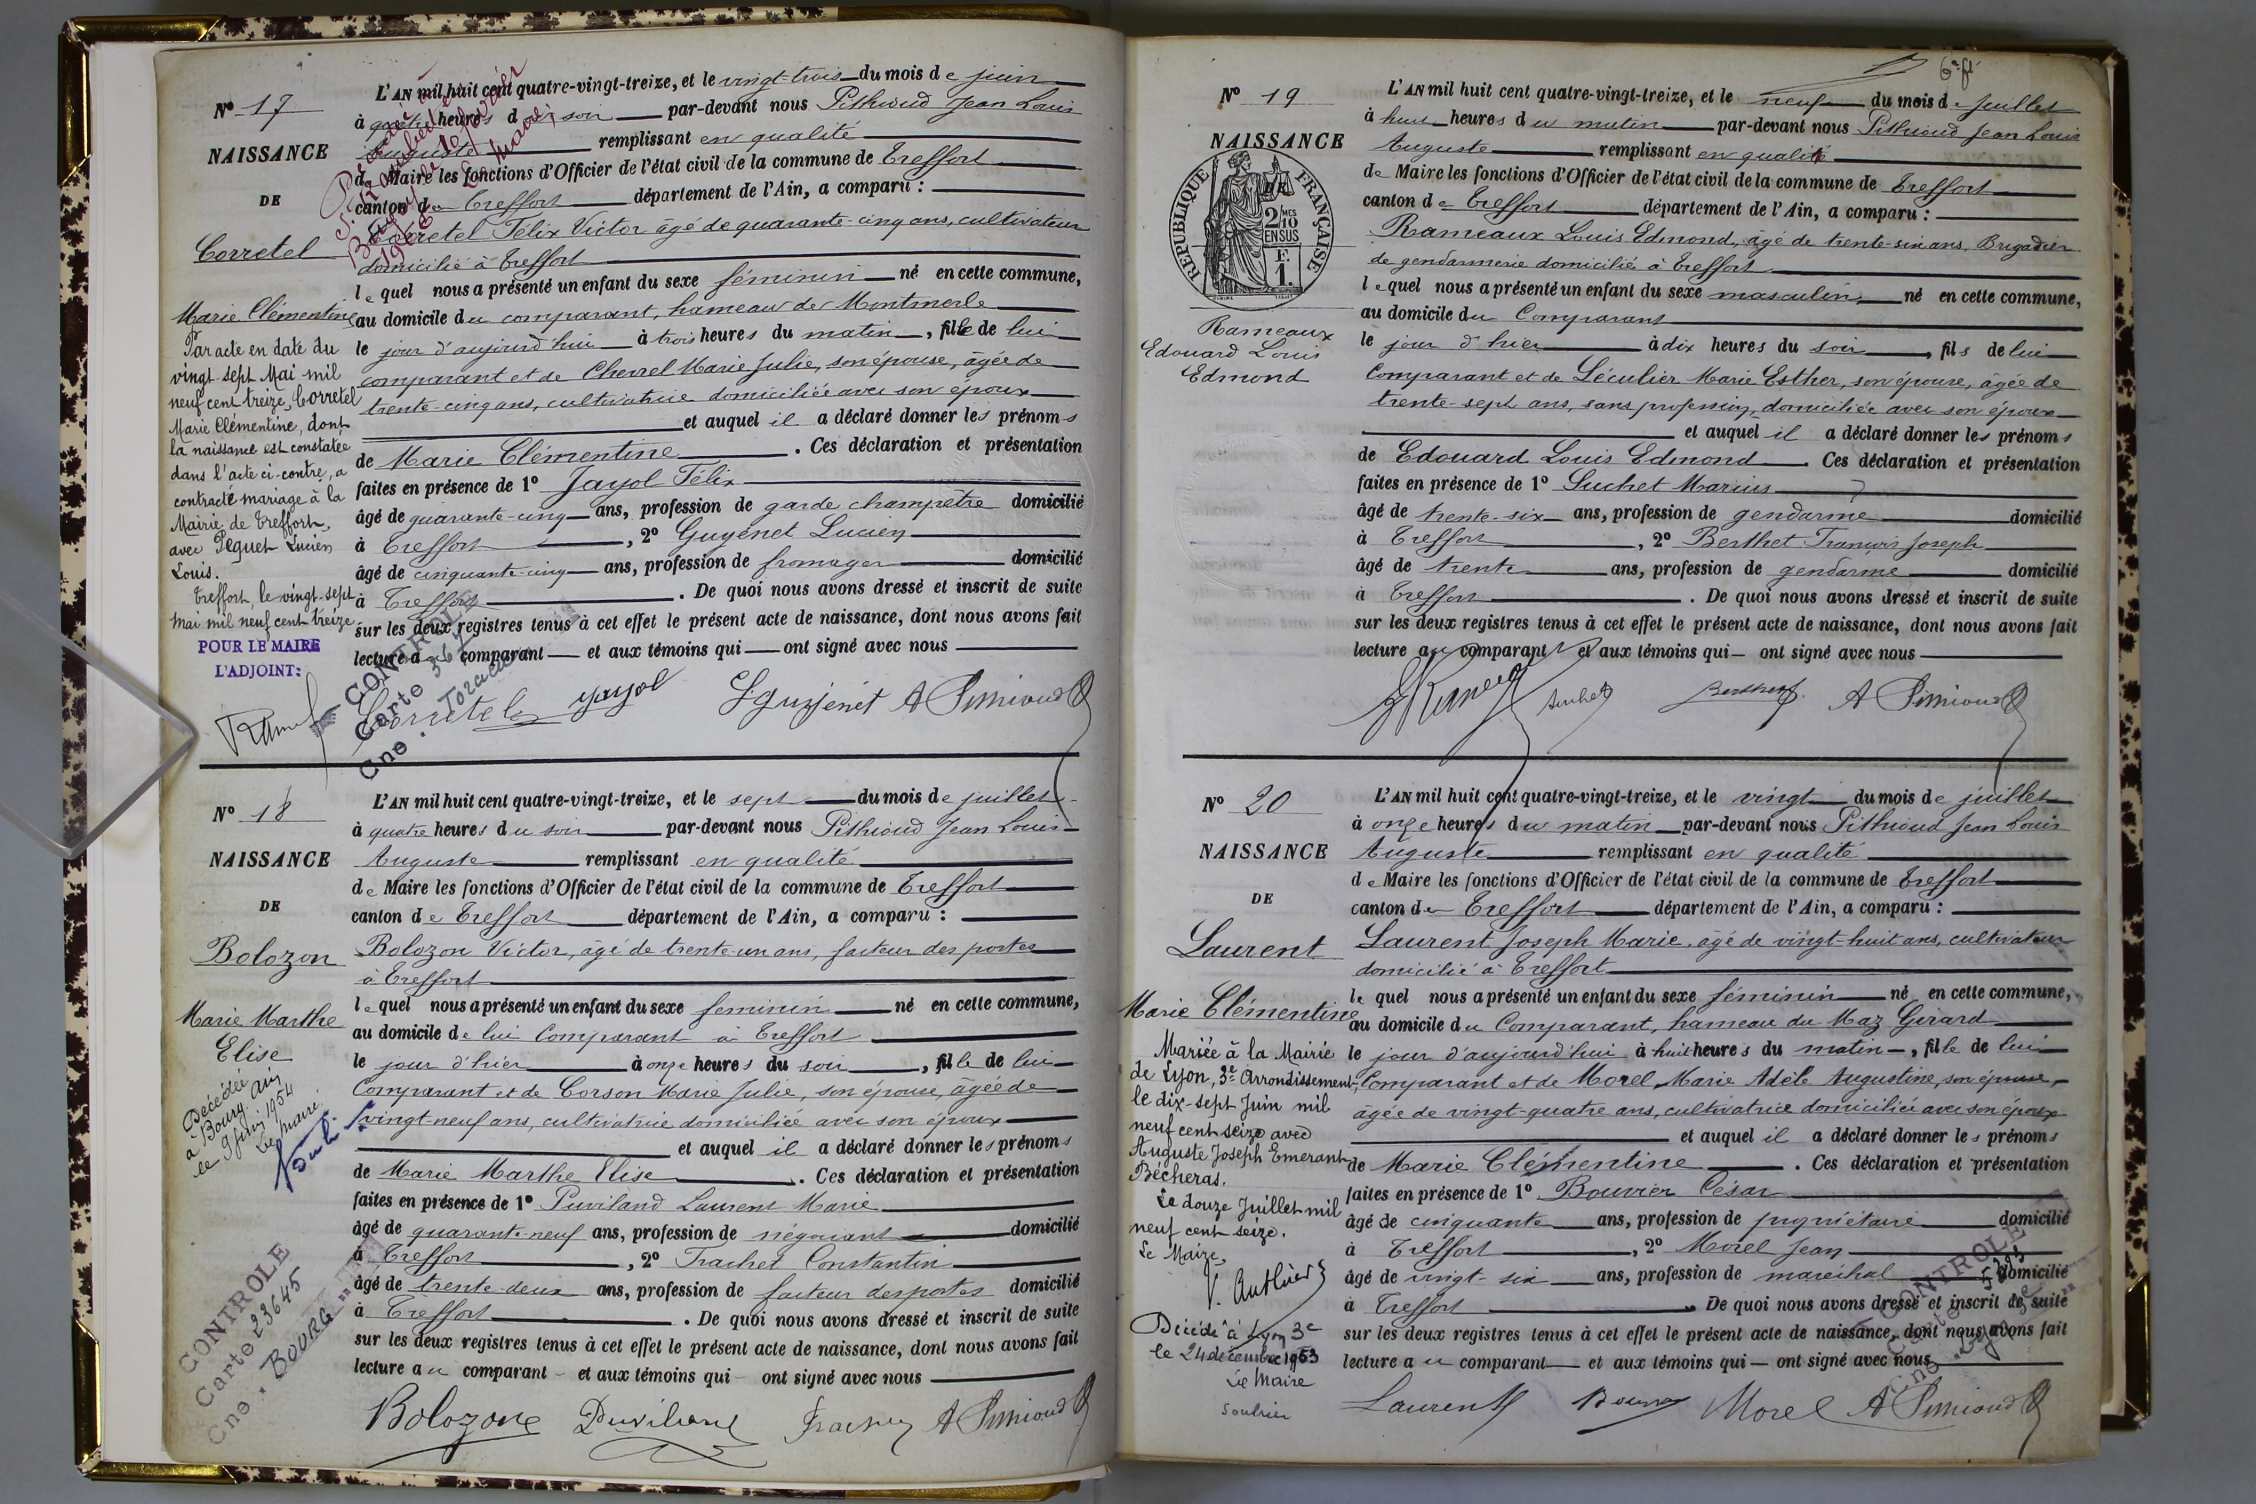 N° 17
NAISSANCE
DE
Corretel
Marie Clémentine
Par acte en date du
vingt-sept Mai mil
neuf cent treize, Corretel
Marie Clémentine, dont
la naissance est constatée
dans l'acte ci-contre, a
contracté mariage à la
Mairie de Treffort,
avec Peguet Lucien
Louis.
Treffort, le vingt-sept
mai mil neuf cent treize
POUR LE MAIRE
L'ADJOINT:
L'AN mil huit cent quatre-vingt-treize, et le vingt-trois du mois de juin
à quatre heures du soir par-devant nous Pithioud Jean Louis
Auguste remplissant en qualité
de Maire les fonctions d'Officier de l'état civil de la commune de Treffort
canton de Treffort département de l'Ain, a comparu :
Corretel Félix Victor âgé de quarante-cinq ans, cultivateur
domicilié à Treffort
lequel nous a présenté un enfant du sexe féminin né en cette commune,
au domicile du comparant, hameau de Montmerle
le jour d'aujourd'hui à trois heures du matin, fille de lui
comparant et de Chevrel Marie Julie, son épouse, âgée de
trente-cinq ans, cultivatrice domiciliée avec son époux
et auquel il a déclaré donner les prénoms
de Marie Clémentine. Ces déclaration et présentation
faites en présence de 1° Jayol Félix
âgé de quarante-cinq ans, profession de garde champêtre domicilié
à Treffort, 2° Guyenet Lucien
âgé de cinquante-cinq ans, profession de fromager domicilié
à Treffort. De quoi nous avons dressé et inscrit de suite
sur les deux registres tenus à cet effet le présent acte de naissance, dont nous avons fait
lecture au comparant et aux témoins qui ont signé avec nous
CONTROLE
Carte
Cne.
Corretel Jayol L Guyenet A Pithioud
N° 18
NAISSANCE
DE
Bolozon
Marie Marthe
Elise
Décédée
à Bourg Ain
1954
Le maire
CONTROLE
Carte 23645
Cne. BOURG
L'AN mil huit cent quatre-vingt-treize, et le sept du mois de juillet
à quatre heures du soir par-devant nous Pithioud Jean Louis
Auguste remplissant en qualité
de Maire les fonctions d'Officier de l'état civil de la commune de Treffort
canton de Treffort département de l'Ain, a comparu :
Bolozon Victor, âgé de trente-un ans, facteur des postes
à Treffort
lequel nous a présenté un enfant du sexe feminin né en cette commune,
au domicile de lui Comparant à Treffort
le jour d'hier à onze heures du soir, fille de lui
Comparant et de Corson Marie Julie, son épouse, âgée de
vingt-neuf ans, cultivatrice domiciliée avec son époux
et auquel il a déclaré donner les prénoms
de Marie Marthe Elise. Ces déclaration et présentation
faites en présence de 1° Puviland Laurent Marie
âgé de quarante-neuf ans, profession de négociant domicilié
à Treffort, 2° Trachet Constantin
âgé de trente-deux ans, profession de facteur des postes domicilié
à Treffort. De quoi nous avons dressé et inscrit de suite
sur les deux registres tenus à cet effet le présent acte de naissance, dont nous avons fait
lecture au comparant et aux témoins qui ont signé avec nous
Bolozon Puviland Trachet A Pithioud
N° 19
NAISSANCE
RÉPUBLIQUE FRANÇAISE
2/10 EN SUS
F. 1.
Rameaux
Edouard Louis
Edmond
L'AN mil huit cent quatre-vingt-treize, et le neuf du mois de Juillet
à huit heures du matin par-devant nous Pithioud Jean Louis
Auguste remplissant en qualité
de Maire les fonctions d'Officier de l'état civil de la commune de Treffort
canton de Treffort département de l'Ain, a comparu :
Rameaux Louis Edmond, âgé de trente-six ans, Brigadier
de gendarmerie domicilié à Treffort
lequel nous a présenté un enfant du sexe masculin né en cette commune,
au domicile du Comparant
le jour d'hier à dix heures du soir, fils de lui
Comparant et de Léculier Marie Esther, son épouse, âgée de
trente-sept ans, sans profession, domiciliée avec son époux
et auquel il a déclaré donner les prénoms
de Edouard Louis Edmond. Ces déclaration et présentation
faites en présence de 1° Suchet Marius
âgé de trente-six ans, profession de gendarme domicilié
à Treffort, 2° Berthet François Joseph
âgé de trente ans, profession de gendarme domicilié
à Treffort. De quoi nous avons dressé et inscrit de suite
sur les deux registres tenus à cet effet le présent acte de naissance, dont nous avons fait
lecture au comparant et aux témoins qui ont signé avec nous
Suchet Berthet A Pithioud
N° 20
NAISSANCE
DE
Laurent
Marie Clémentine
Mariée à la Mairie
de Lyon, 3e Arrondissement,
le dix-sept Juin mil
neuf cent seize avec
Auguste Joseph Emerant
Bécheras.
Le douze Juillet mil
neuf cent seize.
Le Maire,
Décédée à Lyon 3e
le 24 décembre 1963
Le Maire
L'AN mil huit cent quatre-vingt-treize, et le vingt du mois de juillet
à onze heures du matin par-devant nous Pithioud Jean Louis
Auguste remplissant en qualité
de Maire les fonctions d'Officier de l'état civil de la commune de Treffort
canton de Treffort département de l'Ain, a comparu :
Laurent Joseph Marie, âgé de vingt-huit ans, cultivateur
domicilié à Treffort
lequel nous a présenté un enfant du sexe féminin né en cette commune,
au domicile du Comparant, hameau du Maz Girard
le jour d'aujourd'hui à huit heures du matin, fille de lui
Comparant et de Morel Marie Adèle Augustine, son épouse,
âgée de vingt-quatre ans, cultivatrice domiciliée avec son époux
et auquel il a déclaré donner les prénoms
de Marie Clémentine. Ces déclaration et présentation
faites en présence de 1° Bouvier César
âgé de cinquante ans, profession de propriétaire domicilié
à Treffort, 2° Morel Jean
âgé de vingt-six ans, profession de maréchal domicilié
à Treffort. De quoi nous avons dressé et inscrit de suite
sur les deux registres tenus à cet effet le présent acte de naissance, dont nous avons fait
lecture au comparant et aux témoins qui ont signé avec nous
CONTROLE
Laurent Bouvier Morel A Pithioud